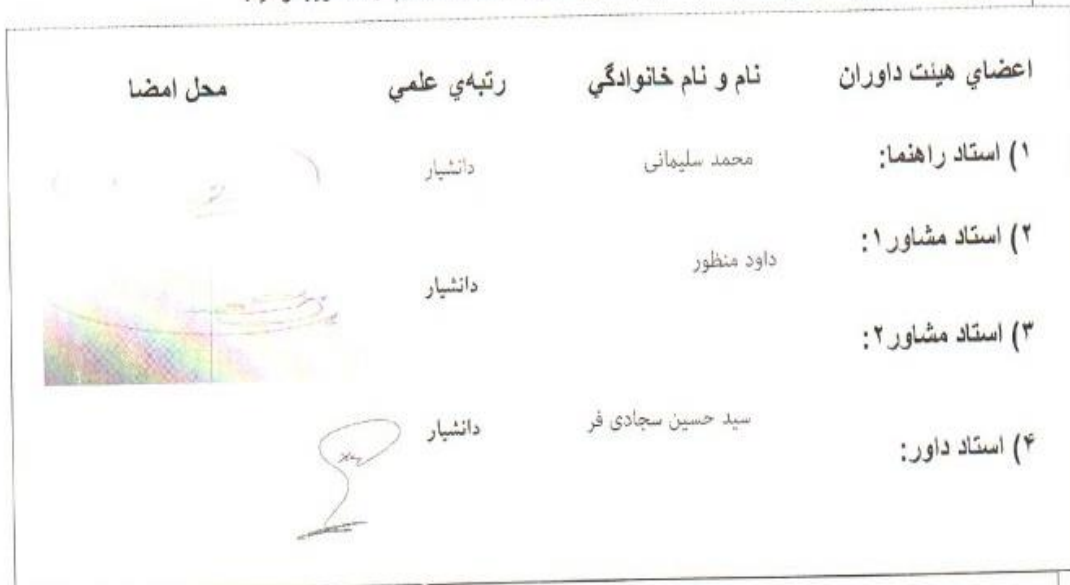 اعضاي هيئت داوران نام و نام خانوادگي رتبه‌ي علمي محل امضا
۱) استاد راهنما: محمد سلیمانی دانشیار
۲) استاد مشاور ۱: داود منظور دانشیار
۳) استاد مشاور ۲:
۴) استاد داور: سید حسین سجادی فر دانشیار